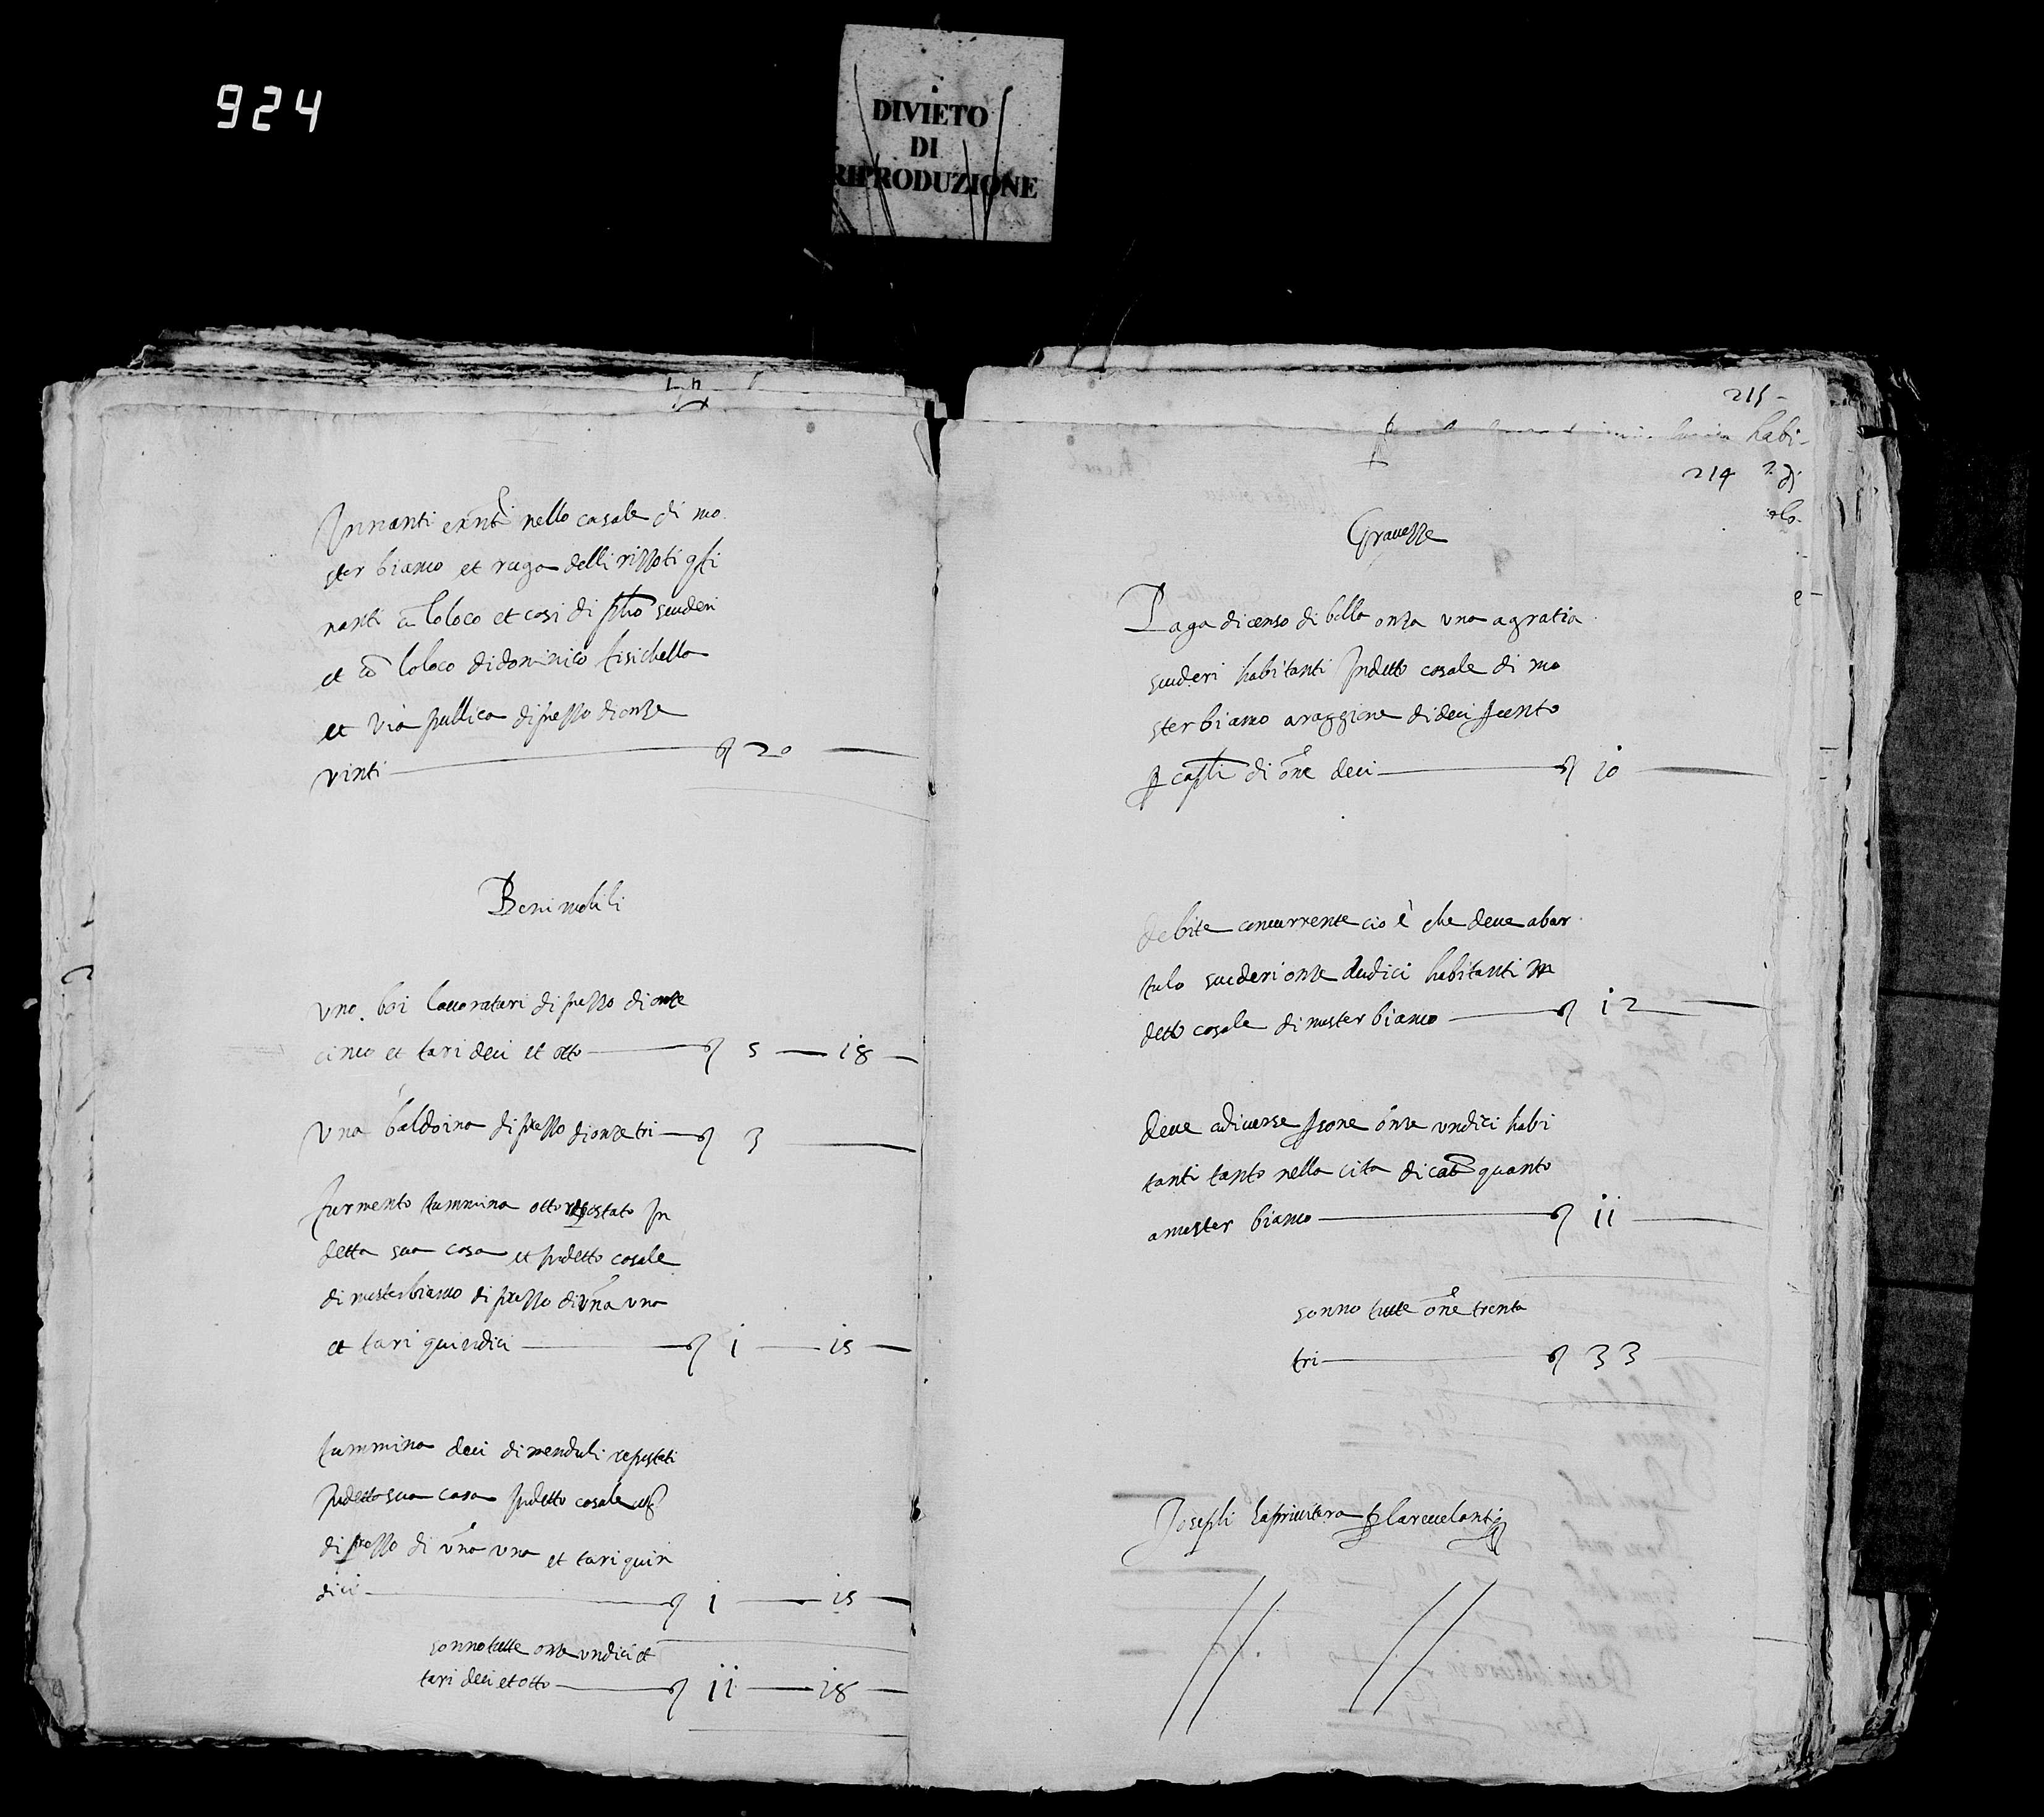 924
DIVIETO
DI
RIPRODUZIONE
Innanti exnti nello casale di mo
ster bianco et ruga delli rizzoti cfi
nanti cō loloco et casi di scuderi
et cō loloco didominico fisichella
et via publica diprezzo dionze
vinti 20
Beni mobili
Uno boi lavoraturi di prezzo dionze
cinco et tari deci et otto 5 18
Una baldoina di prezzo dionze tri 3
furmento tummina otto repostato In
detta sua casa et Indetto casale
di mosterbianco di prezzo di onza una
et tari quindici 1 15
tummina deci di menduli repostati
Indetta sua casa Indetto casale
di prezzo di onza una et tari quin
dici 1 15
sonno tutte onze undici et
tari deci et otto 11 18
215
habi
214
Gravezze
Paga dicenso di bolla onza una agratia
scuderi habitanti Indetto casale di mo
ster bianco araggione di deci per cento
per capli di onze deci 10
debite concurrente cio è che deve abar
tulo scuderi onze dudici habitanti in
detto casale di moster bianco 12
deve adiverse persone onze undici habi
tanti tanto nella cita di cata quanto
a moster bianco 11
sonno tutte onze trenta
tri 33
Joseph laprivitera per larevelanti